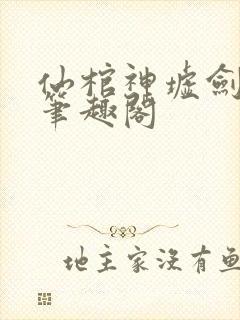 仙棺神墟劍
筆趣閣
地主家沒有魚